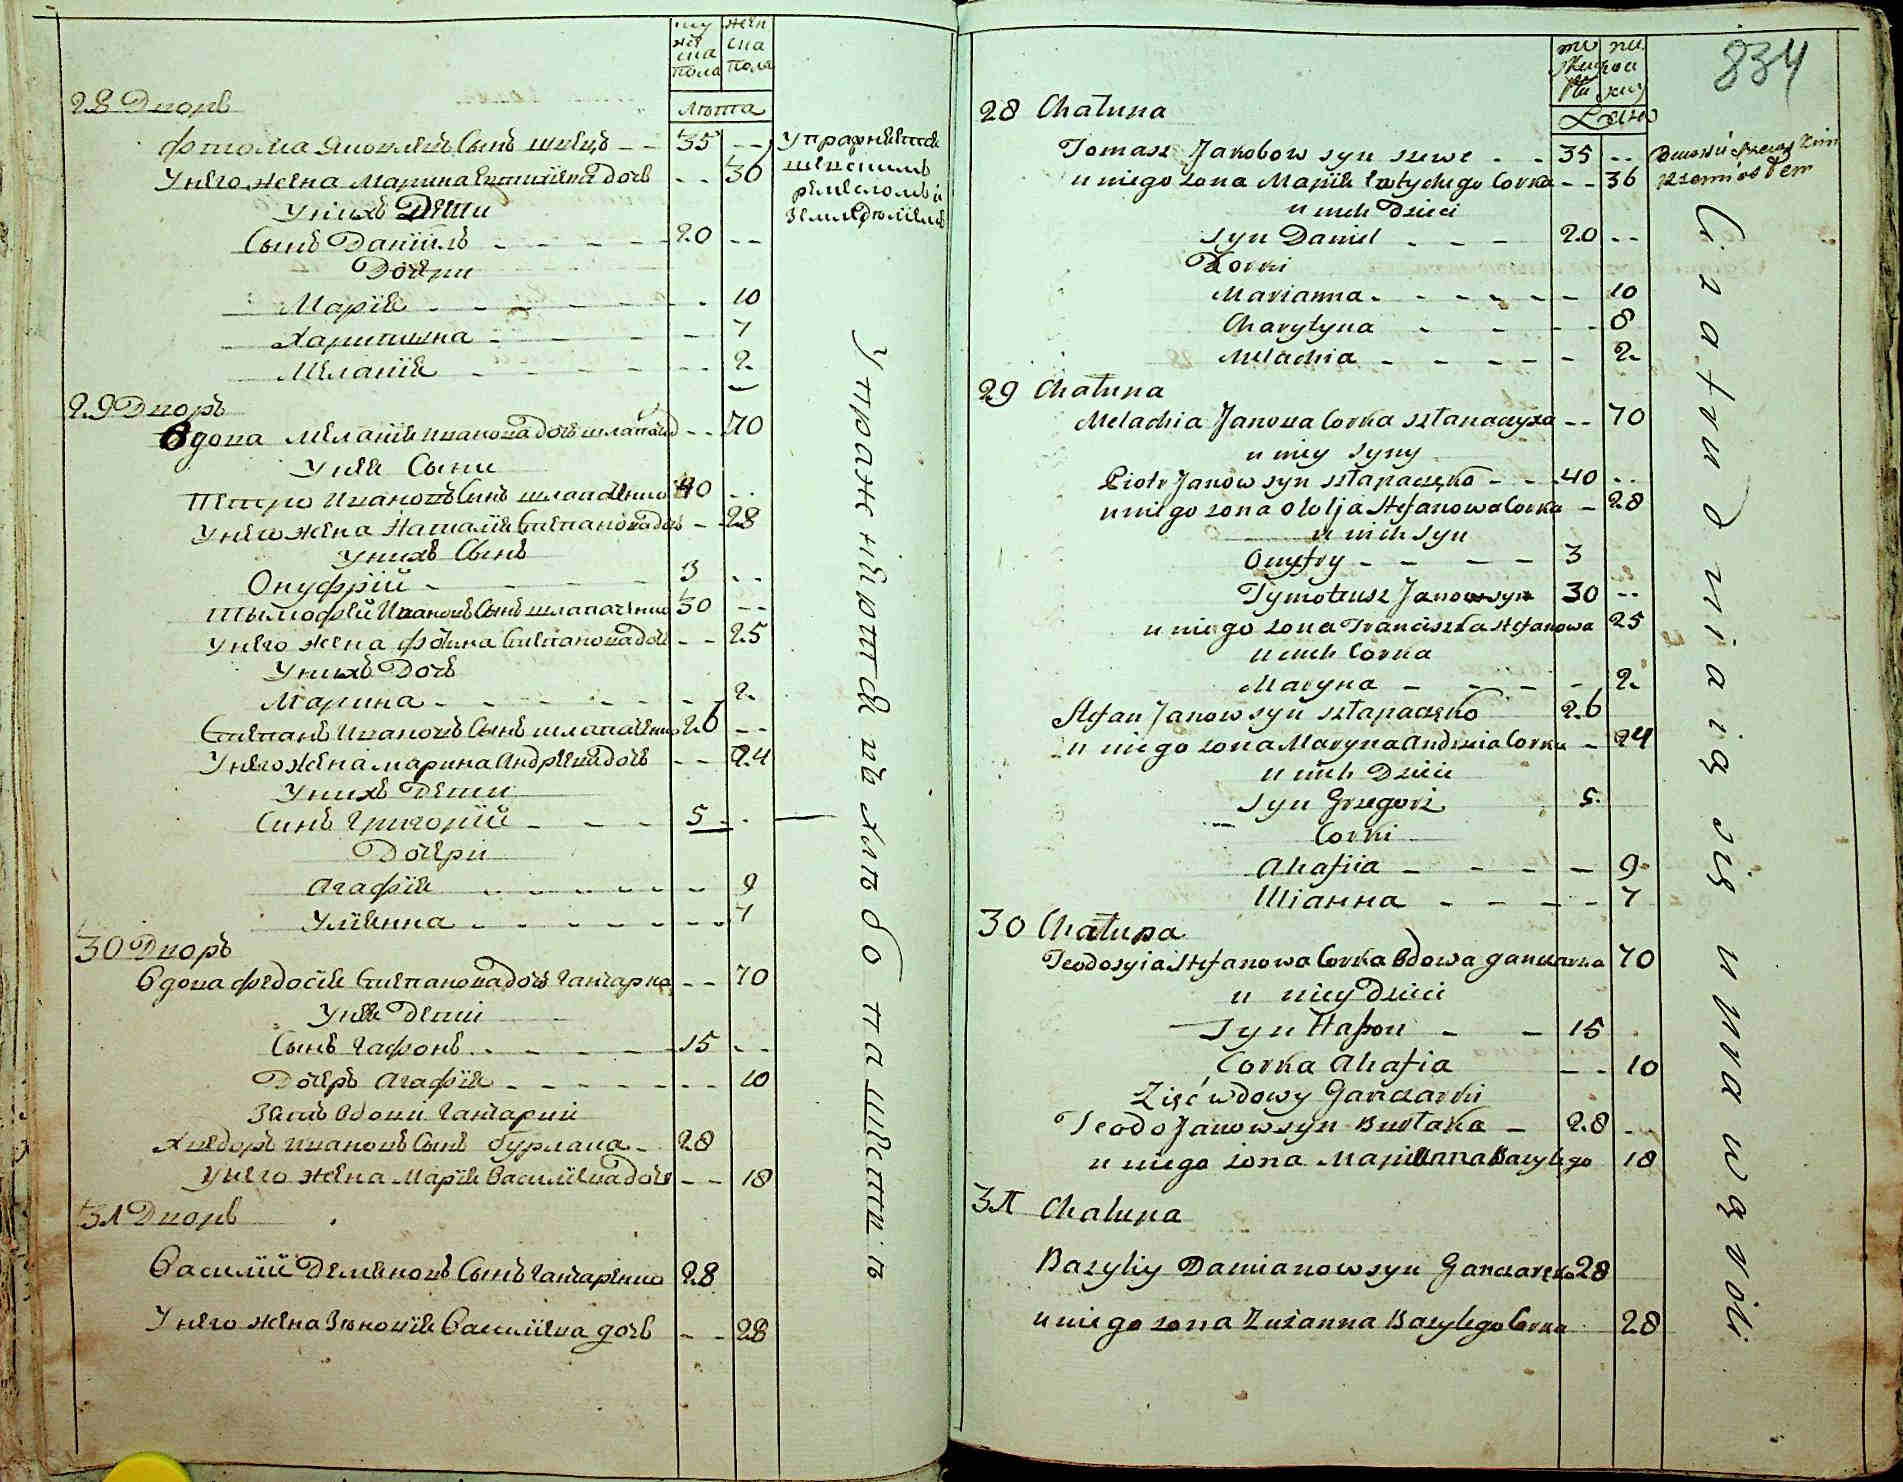 му жен
жес ска
ска пола
пола
лѣта
28 Дворъ
Фтома Яковлевъ Сынъ швецъ 35 упражняется
У него жена Марина Евтихіева дочь 36 шевскимъ
ремесломъ и
У нихъ Дети земледелиемъ
Сынъ Даніилъ 20
Дочери
Марія 10
Харитина 7
Меланія 2
29 Дворъ
Вдова Меланія Иванова дочь 70
У нея Сыни
Петро Ивановъ Сынъ шлапаченко 40
У него жена Наталія Степанова дочь 28
У нихъ Сынъ
Онуфрій 3
Тымофей Ивановъ Сынъ шлапаченко 30
У него жена Фотина Степанова дочь 25
У нихъ Дочь
Марина 2
Степанъ Ивановъ Сынъ шлапаченко 26
У него жена Марина Андреева дочь 24
У нихъ Дети
Синъ Григорій 5
Дочери
Агафія 9
Уліянна 7
30 Дворъ
Вдова Федосія Степанова дочь Ганчарка 70
У нея Дети
Сынъ Гафонъ 15
Дочеръ Агафія 10
Зять Вдовы Ганчарки
Хведоръ Ивановъ Сынъ Бурлака 28
У него жена Марія Василіева дочь 18
31 Дворъ
Василій Деменовъ Сынъ Ганчаренко 28
У него жена Зѣновія Василіева дочь 28
Упражняются въ хлебопашестви
834
Lata
28 Chałupa
Tomasz Jakobow syn szwec 35
u niego zona Maryia Corka 36 Rzemiosłem
u nich Dzieci
syn Daniel 20
Corki
Marianna 10
Charytyna 8
Melachia 2
29 Chałupa
Melachia Janowa Corka szłapaczyxa 70
u niey syny
Piotr Janow syn szłapaczęko 40
u niego zona Stefanowa Corka 28
u nich syn
Onufry 3
Tymoteusz Janow syn 30
u niego zona Franciszka Stefanowa 25
u nich Corka
Maryna 2
Stefan Janow syn szłapaczęko 26
u niego zona Maryna Andrzeia Corka 24
u nich Dzieci
syn Grzegorz 5
Corki
Ahafiia 9
Ulianna 7
30 Chałupa
Teodosyia Stefanowa Corka Wdowa ganczarka 70
u niey Dzieci
Syn Hafon 15
Corka Ahafia 10
Zięć wdowy Ganczarki
Teodo Janow syn Burłaka 28
u niego zona Maryanna Bazylego 18
31 Chałupa
Bazyliy Damianow syn Ganczaręko 28
u niego zona Zuzanna Bazylego Corka 28
Czatrudniaią się uprawą roli